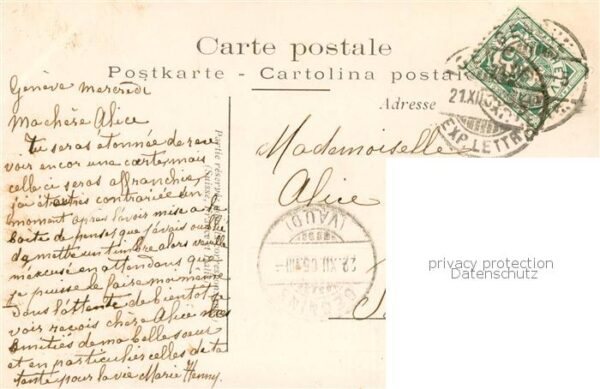 Carte postale
Postkarte - Cartolina postale
Adresse
Genève mercredi
Ma chère Alice
Tu seras étonnée de rece
voir encor une carte mais
celle ci seras affranchie
j'ai été très contrariée en
moment après l'avoir mise a la
boîte de penser que j'avais oublié
de mettre un timbre alors veuille
m'excuser en attendans que
je puisse le faire moi même
Dans l'attente de bientôt te
voir reçois chère Alice mes
amitiés de ma belle sœur
et en particulier celles de ta
tante pour la vie Marie Henny
Partie réservée
Mademoiselle
Alice
GENÈVE
21.XII.05
EXP. LETTR.
(VAUD)
22.XII.05
privacy protection
Datenschutz